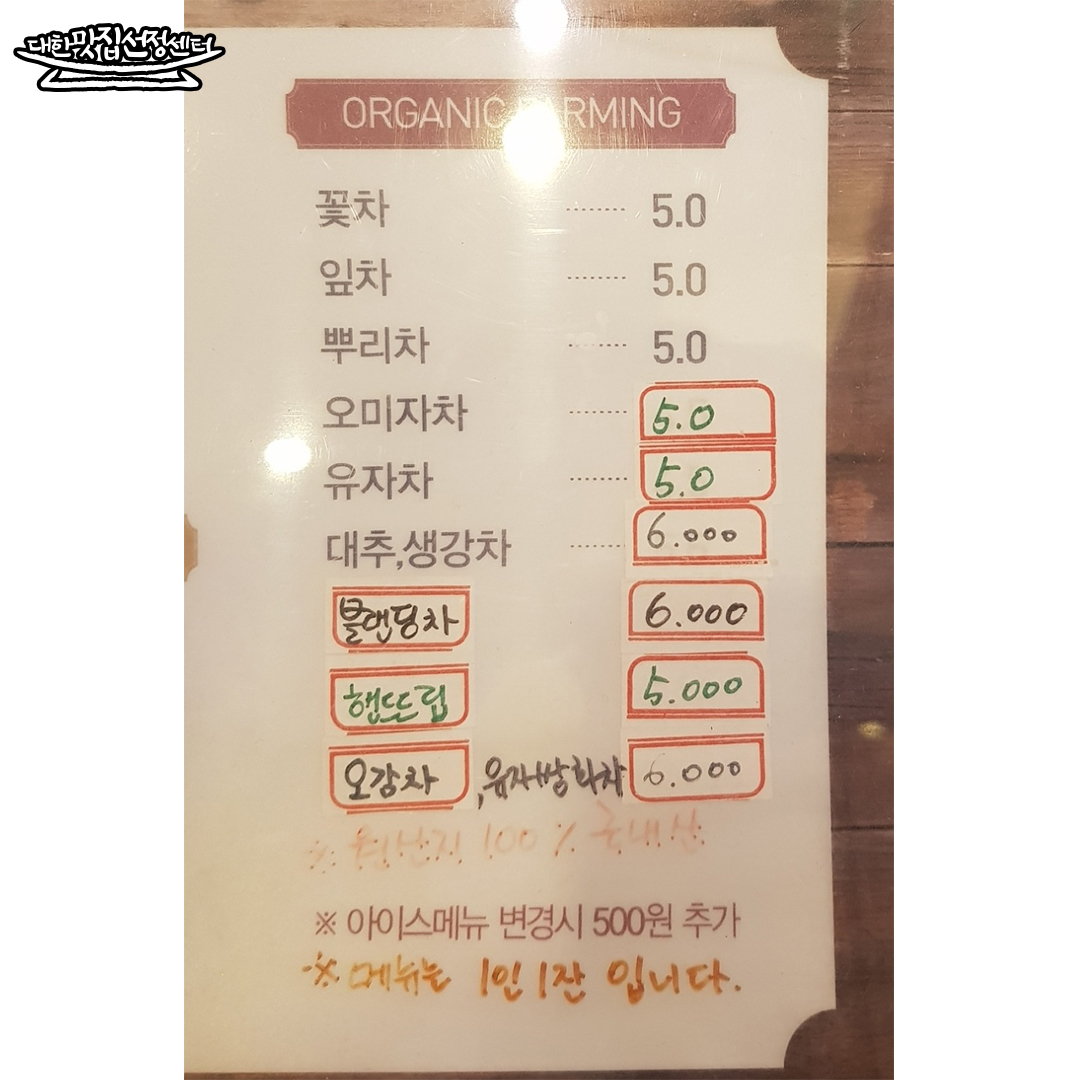 대한맛집선정센터
ORGANIC FARMING
꽃차 ········ 5.0
잎차 ········ 5.0
뿌리차 ········ 5.0
오미자차 ········ 5.0
유자차 ········ 5.0
대추,생강차 ········ 6.000
블랜딩차 6.000
핸뜨립 5.000
오감차 ,유자쌍화차 6.000
※ 원산지 100% 국내산
※ 아이스메뉴 변경시 500원 추가
※ 메뉴는 1인 1잔 입니다.